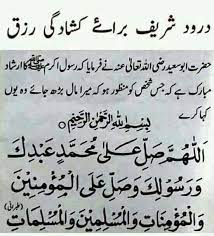 درود شریف برائے کشادگی رزق
حضرت ابوسعید رضی اللہ تعالیٰ عنہ نے فرمایا کہ رسول اکرم ﷺ کا ارشاد
مبارک ہے کہ جس شخص کو منظور ہو کہ میرا مال بڑھ جائے وہ یوں کہے
بِسْمِ اللهِ الرَّحْمٰنِ الرَّحِيْمِ
اَللّٰهُمَّ صَلِّ عَلٰى مُحَمَّدٍ عَبْدِكَ
وَرَسُوْلِكَ وَصَلِّ عَلَى الْمُؤْمِنِيْنَ
وَالْمُؤْمِنَاتِ وَالْمُسْلِمِيْنَ وَالْمُسْلِمَاتِ